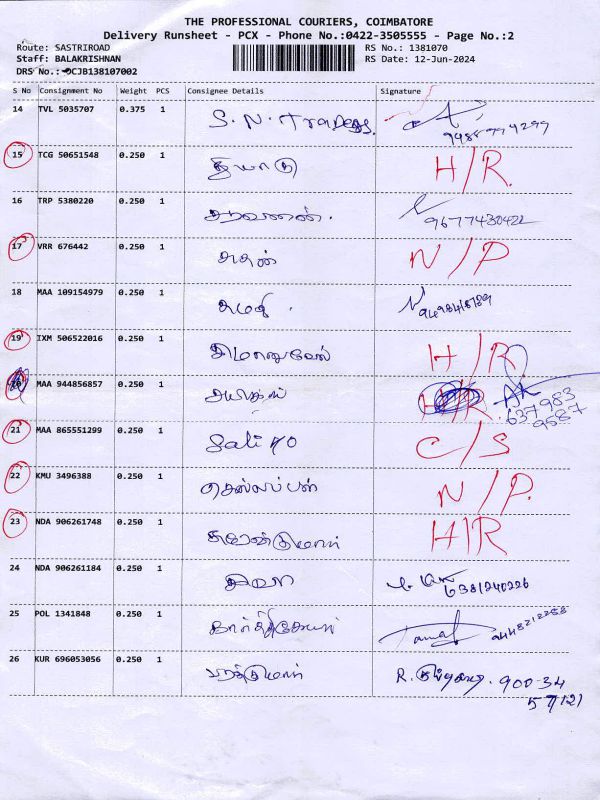 THE PROFESSIONAL COURIERS, COIMBATORE
Delivery Runsheet - PCX - Phone No.:0422-3505555 - Page No.:2
Route: SASTRIROAD RS No.: 1381070
Staff: BALAKRISHNAN RS Date: 12-Jun-2024
DRS No.: CJB138107002
S No Consignment No Weight PCS Consignee Details Signature
14 TVL 5035707 0.375 1 S. N. Traders.
15 TCG 50651548 0.250 1 தியாகு H/R.
16 TRP 5380220 0.250 1 சரவணன். 9677430422
17 VRR 676442 0.250 1 N/P
18 MAA 109154979 0.250 1
19 IXM 506522016 0.250 1 H/R
20 MAA 944856857 0.250 1 H/R AK
637983
9587
21 MAA 865551299 0.250 1 C/S
22 KMU 3496388 0.250 1 செல்லப்பன் N/P.
23 NDA 906261748 0.250 1 H/R
24 NDA 906261184 0.250 1 6381240226
25 POL 1341848 0.250 1 கார்த்திகேயன் 9448212258
26 KUR 696053056 0.250 1 R. 900-34
57121